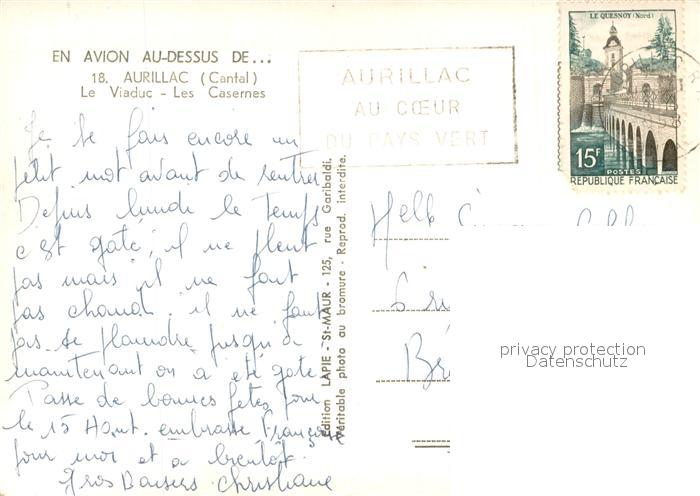 EN AVION AU-DESSUS DE...
18. AURILLAC (Cantal)
Le Viaduc - Les Casernes
AURILLAC
AU CŒUR
DU PAYS VERT
LE QUESNOY (Nord)
15F
POSTES
REPUBLIQUE FRANÇAISE
Je te fais encore un
petit mot avant de rentrer
Depuis lundi le temps
c'est gaté, il ne pleut
pas mais il ne fait
pas chaud. il ne faut
pas se plaindre jusqu'à
maintenant on a été gaté
Passe de bonnes fêtes pour
le 15 Août. embrasse Françoise
pour moi et à bientôt.
Gros Baisers Christiane
Edition LAPIE - St-MAUR - 125, rue Garibaldi.
Véritable photo au bromure - Reprod. interdite.
Melle
privacy protection
Datenschutz